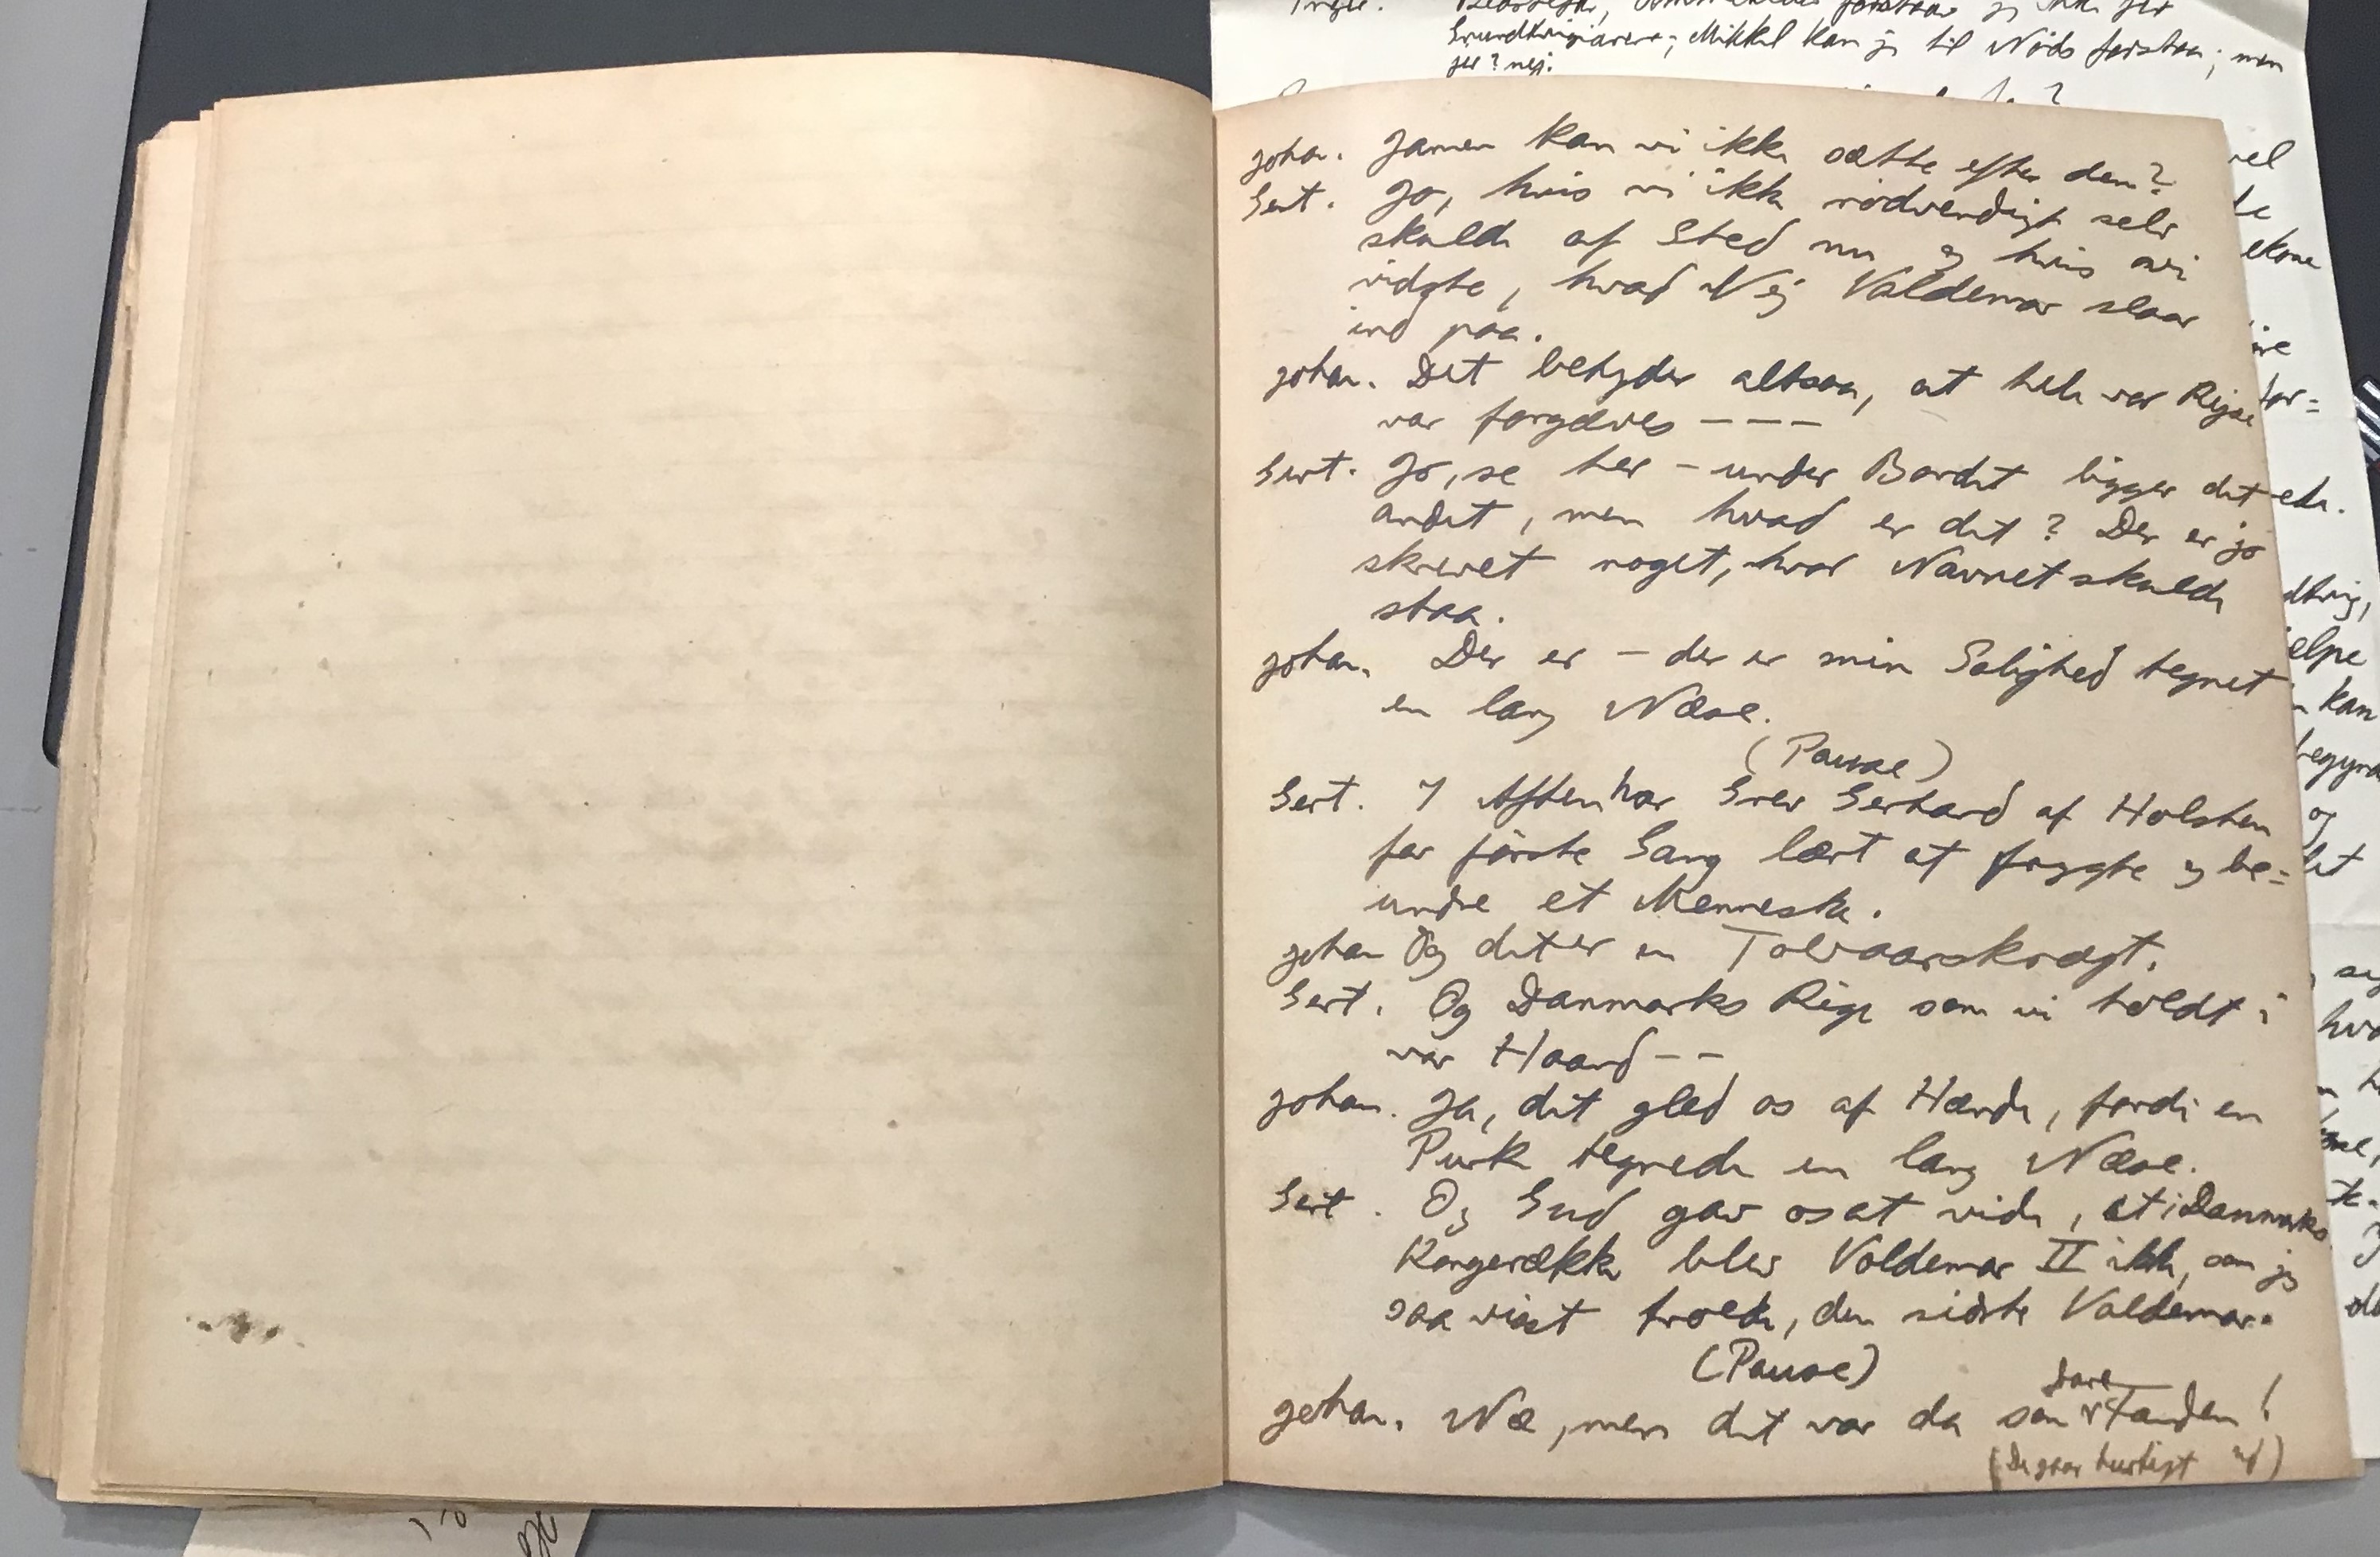 Grundtvigianere; Mikkel kan jeg til Nöds forstaa; men
jer? nej.
Johan. Jamen kan vi ikke sætte efter den?
Gert. Jo, hvis vi ikke nödvendigt selv
skulde af Sted nu og hvis vi
vidste, hvad Vej Valdemar slaar
ind paa.
Johan. Det betyder altsaa, at hele vor Rejse
var forgæves ---
Gert. Jo, se her - under Bordet ligger det
andet, men hvad er det? Der er jo
skrevet noget, hvor Navnet skulde
staa.
Johan. Der er - der er min Salighed tegnet
en lang Næse.
(Pause)
Gert. I Aften har Grev Gerhard af Holsten
for förste Gang lært at frygte og be=
undre et Menneske.
Johan Og det er en Tolvaarsknægt.
Gert. Og Danmarks Rige som vi holdt i
vor Haand--
Johan. Ja, det gled os af Hænde, fordi en
Purk tegnede en lang Næse.
Gert. Og Gud gav os at vide, at i Danmarks
Kongerække blev Valdemar II ikke, som jeg
saa vist troede, den sidste Valdemar.
(Pause)
Johan. Næ, men det var da som Fanden!
(De gaar hurtigt ud)